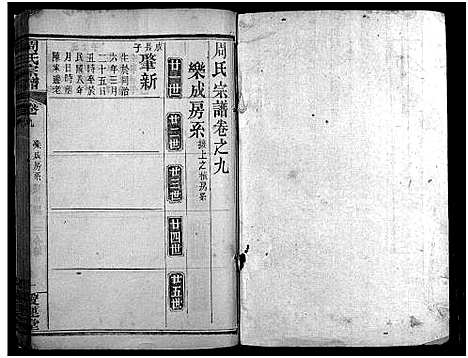 周氏宗譜卷之九
樂成房系 接上之楨房系
廿一世
廿二世
廿三世
廿四世
廿五世
成長子
肇新
生於同治
六年三月
二十五日
丑時卒於
民國
月日時葬
陳家邊老
周氏宗譜
卷九
樂成房系
愛蓮堂